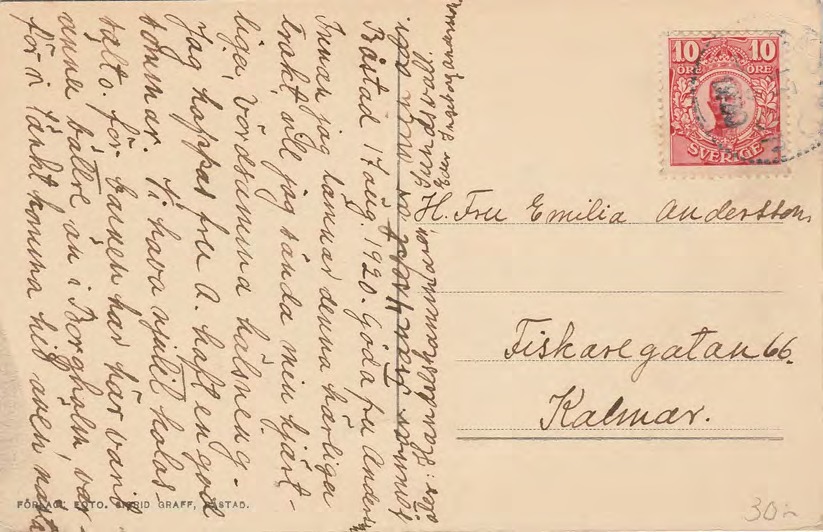 Båstad 17 aug. 1920. Goda fru Anders
Innan jag lämnar denna härliga
trakt, vill jag sända min hjärt-
liga, vördsamma hälsning.
Jag hoppas fru A. haft en god
sommar. Vi hava njutit kolos-
salt. för barnen har här varit
ännu bättre än i Borgholm, var-
för vi tänkt komma hit även näst
Sundsvall.
Eder
10 10
ÖRE ÖRE
SVERIGE
H. Fru Emilia Andersson,
Fiskaregatan 66.
Kalmar.
FÖRLAG: FOTO. SIGRID GRAFF, BÅSTAD.
30:-